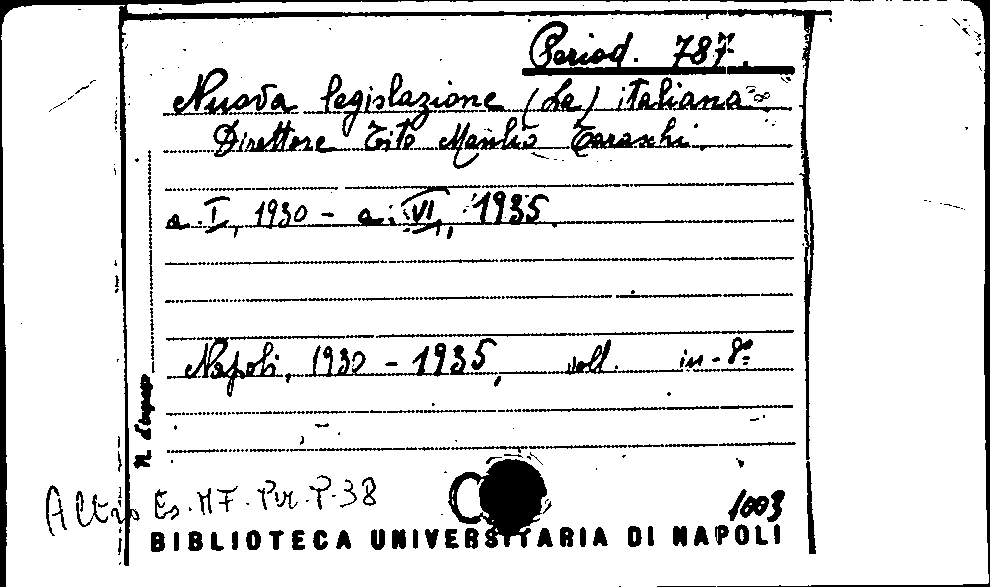 Period. 787.
Nuova legislazione (La) italiana
Direttore Tito Manlio Taraschi.
a. I, 1930 - a. VI, 1935.
Napoli, 1930 - 1935, voll. in-8º
N. d'ingresso
Altro Es. MF. Per. P. 38
1003
BIBLIOTECA UNIVERSITARIA DI NAPOLI